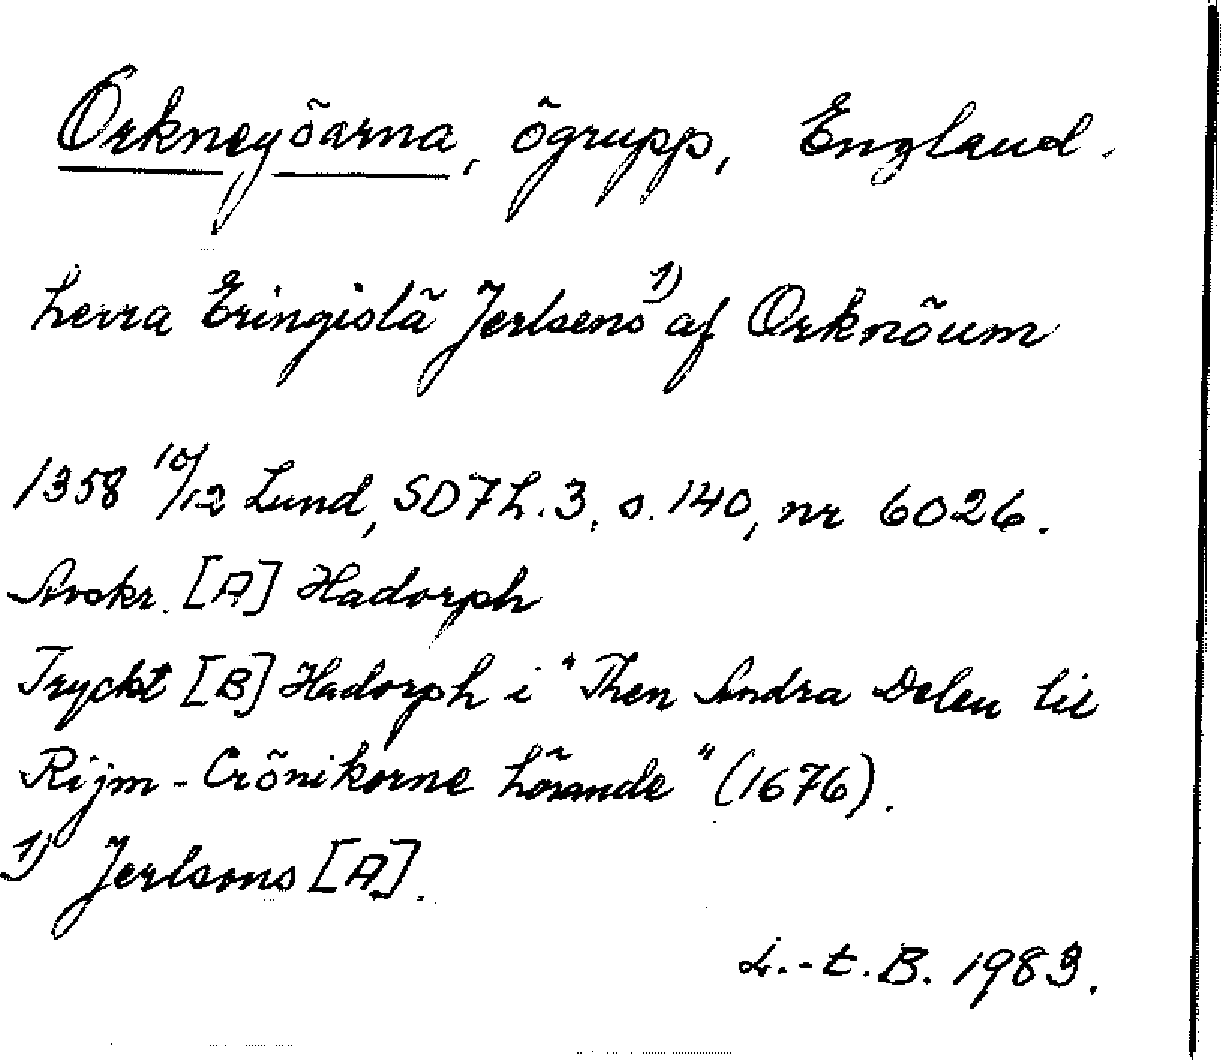 Orkneyöarna, ögrupp, England.
herra Eringislä Jerlsens 1) af Orknöum
1358 10/12 Lund, SD 7 h. 3, s. 140, nr 6026.
Avskr. [A] Hadorph
Tryckt [B] Hadorph i "Then Andra Delen til
Rijm-Crönikorne hörande" (1676).
1) Jerlsons [A].
L.-t. B. 1983.